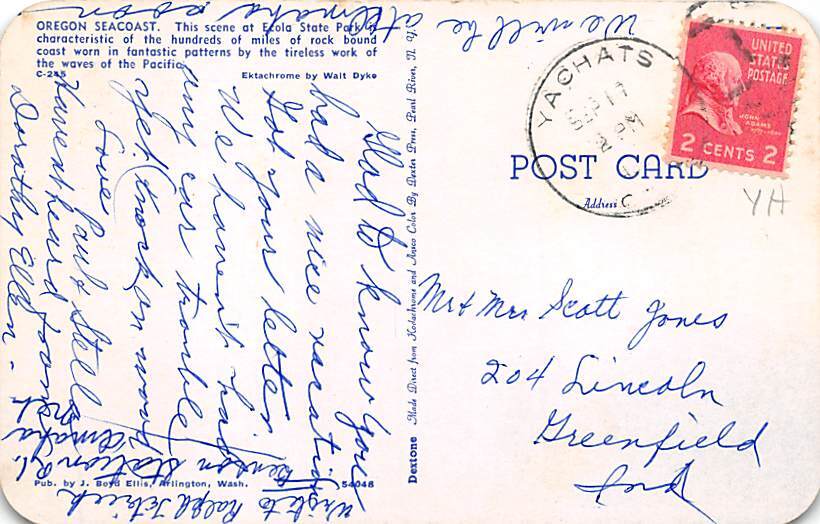 OREGON SEACOAST. This scene at Ecola State Park is
characteristic of the hundreds of miles of rock bound
coast worn in fantastic patterns by the tireless work of
the waves of the Pacific.
C-245
Ektachrome by Walt Dyke
Glad to know you
had a nice vacation
Got your letter
We haven't had
any car trouble
yet (knock on wood
Love
Paul & Stella
Haven't heard from
Dorathy Ellen -
We will be at Omaha
soon
write to Ralph
Benson Station
Omaha
Neb.
Pub. by J. Boyd Ellis, Arlington, Wash.
54048
Dextone
Made Direct from Kodachrome and Ansco Color By Dexter Press, Pearl River, N. Y.
YACHATS
SEP 17
2 PM
UNITED
STATES
POSTAGE
JOHN
ADAMS
2 CENTS 2
POST CARD
Address
YH
Mr & Mrs Scott Jones
204 Lincoln
Greenfield
Ind